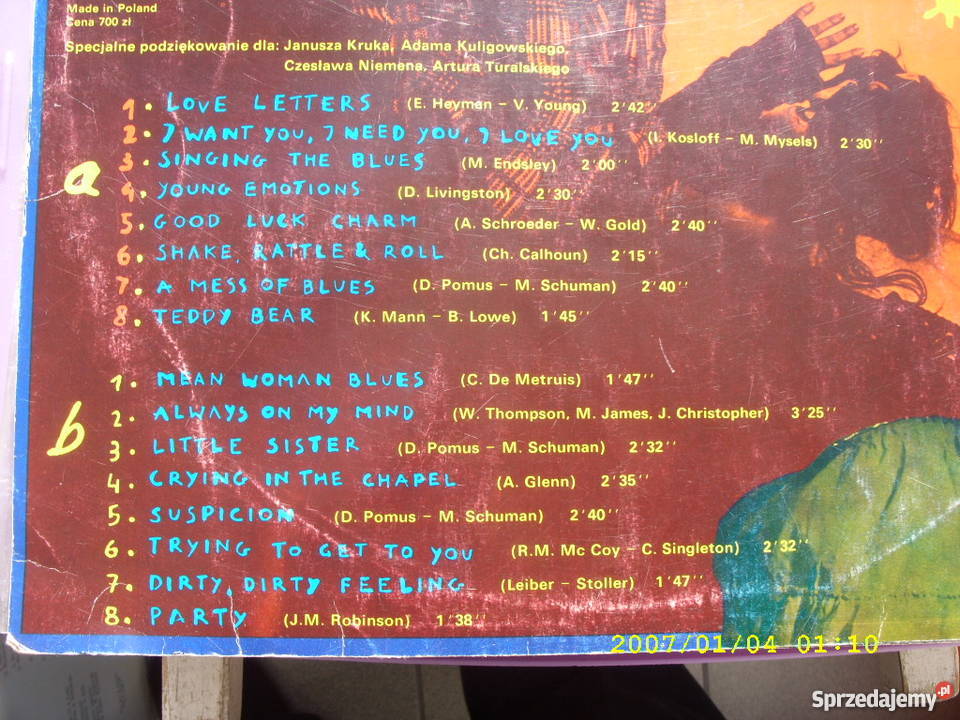 Made in Poland
Cena 700 zł
Specjalne podziękowanie dla: Janusza Kruka, Adama Kuligowskiego,
Czesława Niemena, Artura Turalskiego
a
1. LOVE LETTERS (E. Heyman – V. Young) 2'42''
2. I WANT YOU, I NEED YOU, I LOVE YOU (I. Kosloff – M. Mysels) 2'30''
3. SINGING THE BLUES (M. Endsley) 2'00''
4. YOUNG EMOTIONS (D. Livingston) 2'30''
5. GOOD LUCK CHARM (A. Schroeder – W. Gold) 2'40''
6. SHAKE, RATTLE & ROLL (Ch. Calhoun) 2'15''
7. A MESS OF BLUES (D. Pomus – M. Schuman) 2'40''
8. TEDDY BEAR (K. Mann – B. Lowe) 1'45''
b
1. MEAN WOMAN BLUES (C. De Metruis) 1'47''
2. ALWAYS ON MY MIND (W. Thompson, M. James, J. Christopher) 3'25''
3. LITTLE SISTER (D. Pomus – M. Schuman) 2'32''
4. CRYING IN THE CHAPEL (A. Glenn) 2'35''
5. SUSPICION (D. Pomus – M. Schuman) 2'40''
6. TRYING TO GET TO YOU (R.M. Mc Coy – C. Singleton) 2'32''
7. DIRTY, DIRTY FEELING (Leiber – Stoller) 1'47''
8. PARTY (J.M. Robinson) 1'38''
2007/01/04 01:10
Sprzedajemy.pl